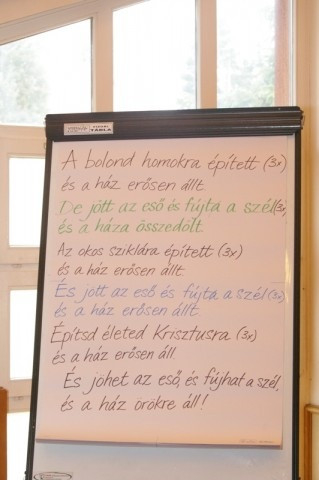 TÁBLA
A bolond homokra épített (3x)
és a ház erősen állt.
De jött az eső és fújta a szél (3x)
és a háza összedőlt.
Az okos sziklára épített (3x)
és a ház erősen állt.
És jött az eső és fújta a szél (3x)
és a ház erősen állt.
Építsd életed Krisztusra (3x)
és a ház erősen áll
És jöhet az eső, és fújhat a szél,
és a ház örökre áll!